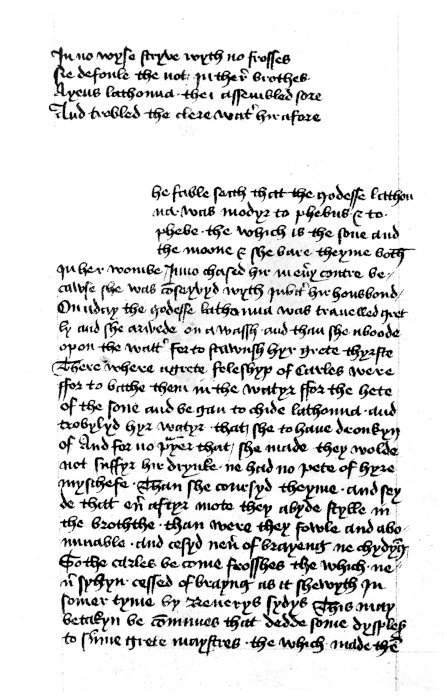 In no wyse stryve wyth no frosses
Ne defoule the not in ther̄ brothes.
Ayens lathonna the i assembled sore
And trobled the clere wat' hir afore
he fable seith that the godesse lathon
na was modyr to phebus & to
phebe the which is the sone and
the moone & she bare theyme both
in her wombe / Juno chased hir in eu'y contre be
cawse she was conseyvyd wyth Jubit' hir housbond /
On aday the godesse lathonna was travelled gret
ly and she arivede on a wassh and than she aboode
opon the watt' for to stawnsh hyr grete thyrste
There where agrete feleshyp of Carles were
ffor to bathe them in the watyr ffor the hete
of the sone and be gan to chide lathonna and
trobylyd hyr watyr that she to have dronkyn
of And for no p'yer that she made they wolde
not suffyr hir drynke ne had no pete of hyre
myschefe Than she coursyd theyme and sey
de that eu' aftyr mote they abyde stylle in
the broththe than were they fowle and abo
minable and cesyd neu' of brayeng ne chydyng
So the carles be come frosshes the which ne
u' sythyn cessed of brayng as it shewyth In
somer tyme by Reverys sydys This may
betakyn be comunes that dedde some dysples
to sume grete maystres the which made the